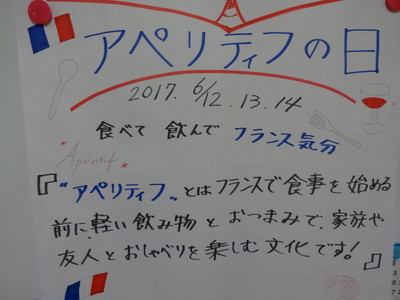 アペリティフの日
2017. 6/12. 13. 14
食べて 飲んで フランス気分
Apéritif
『"アペリティフ„とはフランスで食事を始める
前に軽い飲み物とおつまみで、家族や
友人とおしゃべりを楽しむ文化です!』